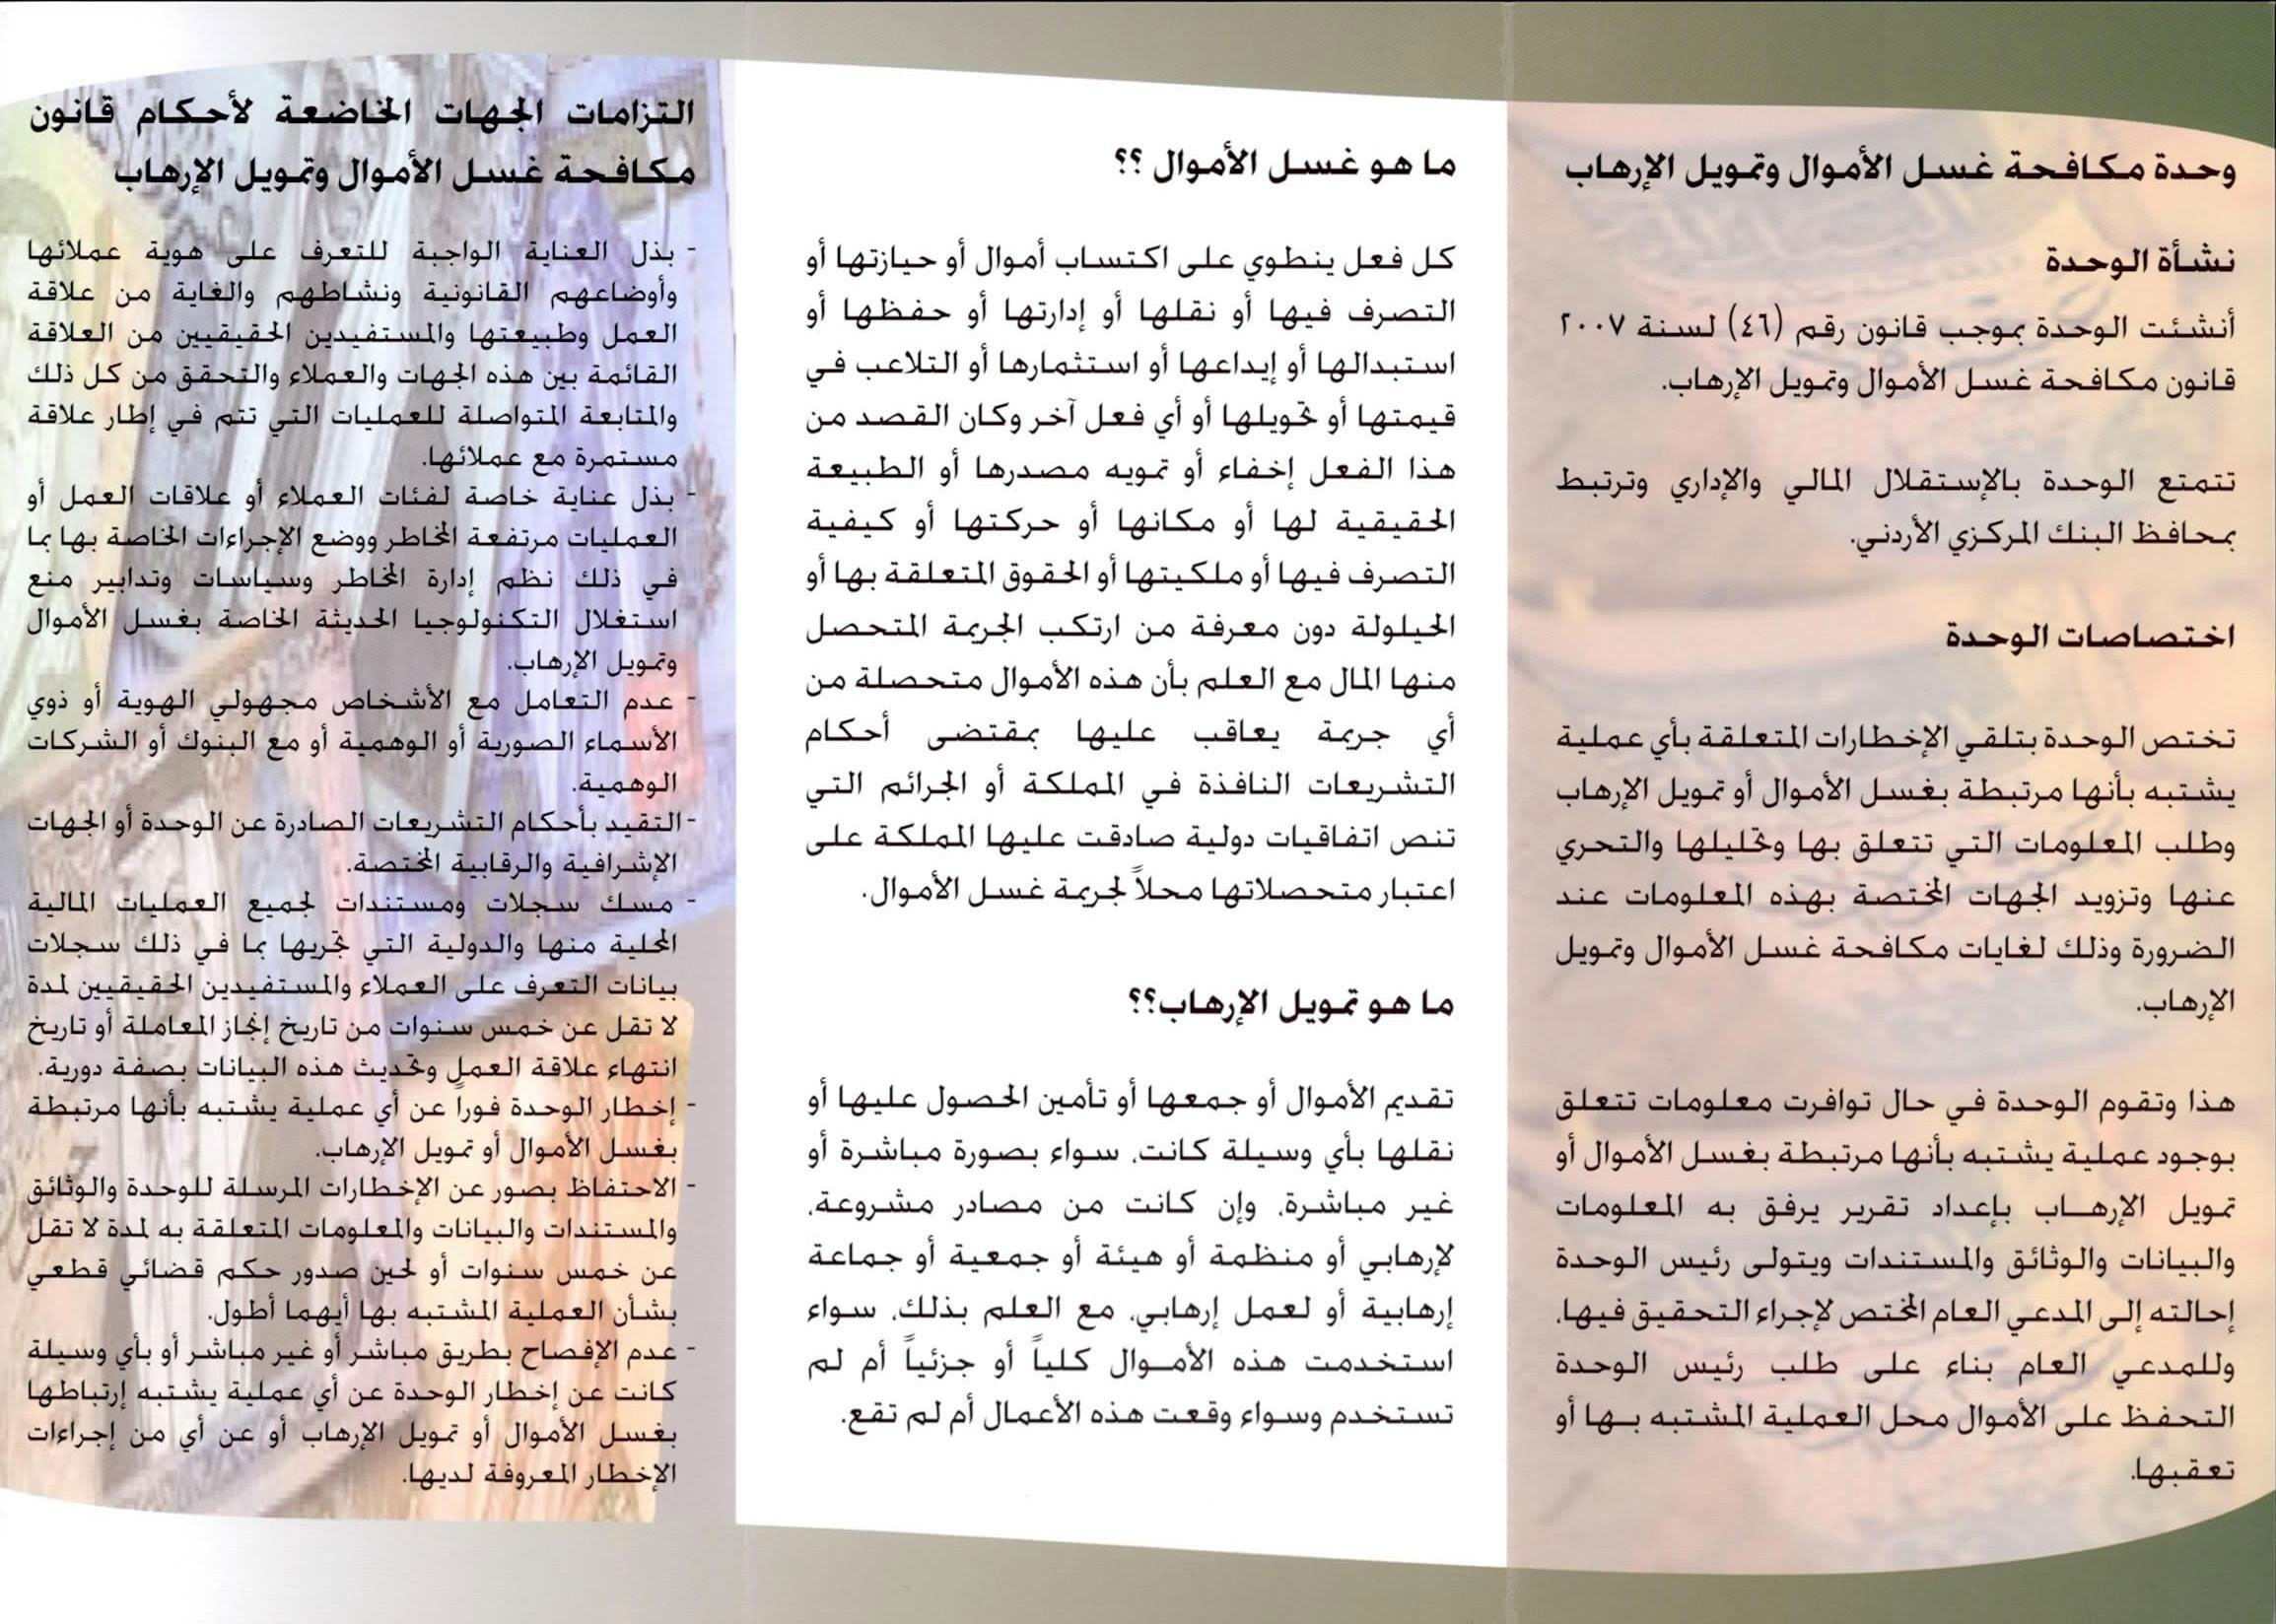 وحدة مكافحة غسل الأموال وتمويل الإرهاب
نشأة الوحدة
أنشئت الوحدة بموجب قانون رقم (٤٦) لسنة ٢٠٠٧
قانون مكافحة غسل الأموال وتمويل الإرهاب.
تتمتع الوحدة بالإستقلال المالي والإداري وترتبط
بمحافظ البنك المركزي الأردني.
اختصاصات الوحدة
تختص الوحدة بتلقي الإخطارات المتعلقة بأي عملية
يشتبه بأنها مرتبطة بغسل الأموال أو تمويل الإرهاب
وطلب المعلومات التي تتعلق بها وتحليلها والتحري
عنها وتزويد الجهات المختصة بهذه المعلومات عند
الضرورة وذلك لغايات مكافحة غسل الأموال وتمويل
الإرهاب.
هذا وتقوم الوحدة في حال توافرت معلومات تتعلق
بوجود عملية يشتبه بأنها مرتبطة بغسل الأموال أو
تمويل الإرهاب بإعداد تقرير يرفق به المعلومات
والبيانات والوثائق والمستندات ويتولى رئيس الوحدة
إحالته إلى المدعي العام المختص لإجراء التحقيق فيها،
وللمدعي العام بناء على طلب رئيس الوحدة
التحفظ على الأموال محل العملية المشتبه بها أو
تعقبها.
ما هو غسل الأموال ؟؟
كل فعل ينطوي على اكتساب أموال أو حيازتها أو
التصرف فيها أو نقلها أو إدارتها أو حفظها أو
استبدالها أو إيداعها أو استثمارها أو التلاعب في
قيمتها أو تحويلها أو أي فعل آخر وكان القصد من
هذا الفعل إخفاء أو تمويه مصدرها أو الطبيعة
الحقيقية لها أو مكانها أو حركتها أو كيفية
التصرف فيها أو ملكيتها أو الحقوق المتعلقة بها أو
الحيلولة دون معرفة من ارتكب الجريمة المتحصل
منها المال مع العلم بأن هذه الأموال متحصلة من
أي جريمة يعاقب عليها بمقتضى أحكام
التشريعات النافذة في المملكة أو الجرائم التي
تنص اتفاقيات دولية صادقت عليها المملكة على
اعتبار متحصلاتها محلاً لجريمة غسل الأموال.
ما هو تمويل الإرهاب؟؟
تقديم الأموال أو جمعها أو تأمين الحصول عليها أو
نقلها بأي وسيلة كانت، سواء بصورة مباشرة أو
غير مباشرة، وإن كانت من مصادر مشروعة،
لإرهابي أو منظمة أو هيئة أو جمعية أو جماعة
إرهابية أو لعمل إرهابي، مع العلم بذلك، سواء
استخدمت هذه الأموال كلياً أو جزئياً أم لم
تستخدم وسواء وقعت هذه الأعمال أم لم تقع.
التزامات الجهات الخاضعة لأحكام قانون
مكافحة غسل الأموال وتمويل الإرهاب
- بذل العناية الواجبة للتعرف على هوية عملائها
وأوضاعهم القانونية ونشاطهم والغاية من علاقة
العمل وطبيعتها والمستفيدين الحقيقيين من العلاقة
القائمة بين هذه الجهات والعملاء والتحقق من كل ذلك
والمتابعة المتواصلة للعمليات التي تتم في إطار علاقة
مستمرة مع عملائها.
- بذل عناية خاصة لفئات العملاء أو علاقات العمل أو
العمليات مرتفعة المخاطر ووضع الإجراءات الخاصة بها بما
في ذلك نظم إدارة المخاطر وسياسات وتدابير منع
استغلال التكنولوجيا الحديثة الخاصة بغسل الأموال
وتمويل الإرهاب.
- عدم التعامل مع الأشخاص مجهولي الهوية أو ذوي
الأسماء الصورية أو الوهمية أو مع البنوك أو الشركات
الوهمية.
- التقيد بأحكام التشريعات الصادرة عن الوحدة أو الجهات
الإشرافية والرقابية المختصة.
- مسك سجلات ومستندات لجميع العمليات المالية
المحلية منها والدولية التي تجريها بما في ذلك سجلات
بيانات التعرف على العملاء والمستفيدين الحقيقيين لمدة
لا تقل عن خمس سنوات من تاريخ إنجاز المعاملة أو تاريخ
انتهاء علاقة العمل وتحديث هذه البيانات بصفة دورية.
- إخطار الوحدة فوراً عن أي عملية يشتبه بأنها مرتبطة
بغسل الأموال أو تمويل الإرهاب.
- الاحتفاظ بصور عن الإخطارات المرسلة للوحدة والوثائق
والمستندات والبيانات والمعلومات المتعلقة به لمدة لا تقل
عن خمس سنوات أو لحين صدور حكم قضائي قطعي
بشأن العملية المشتبه بها أيهما أطول.
- عدم الإفصاح بطريق مباشر أو غير مباشر أو بأي وسيلة
كانت عن إخطار الوحدة عن أي عملية يشتبه إرتباطها
بغسل الأموال أو تمويل الإرهاب أو عن أي من إجراءات
الإخطار المعروفة لديها.